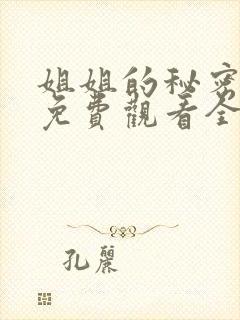 姐姐的秘密
免費觀看全
孔麗